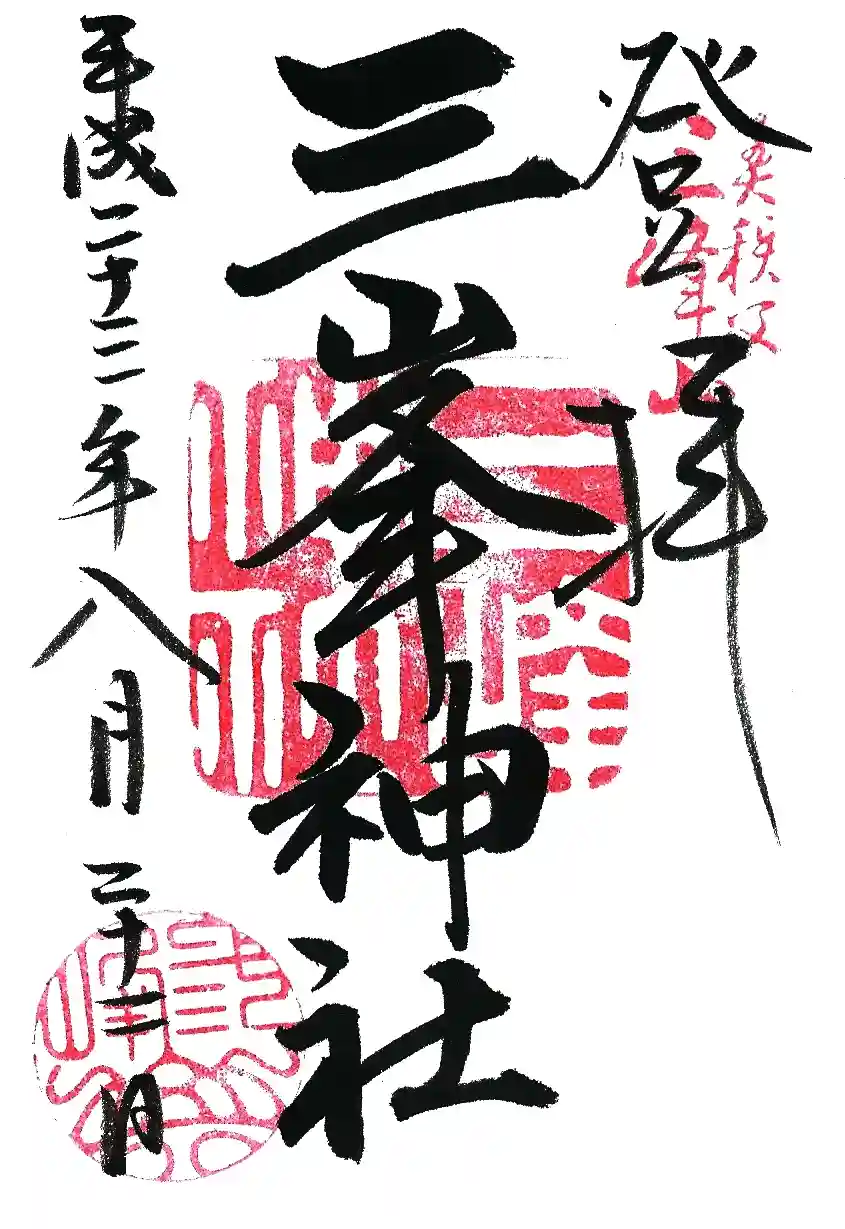 登拝
奥秩父
三峯山
三峯神社
平成二十三年八月二十三日